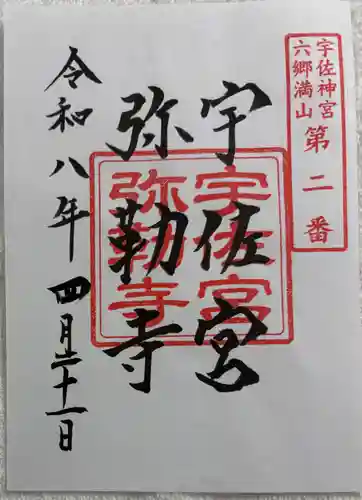 宇佐神宮
六郷満山
第二番
宇佐宮
弥勒寺
宇佐宮
弥勒寺
令和八年四月二十一日